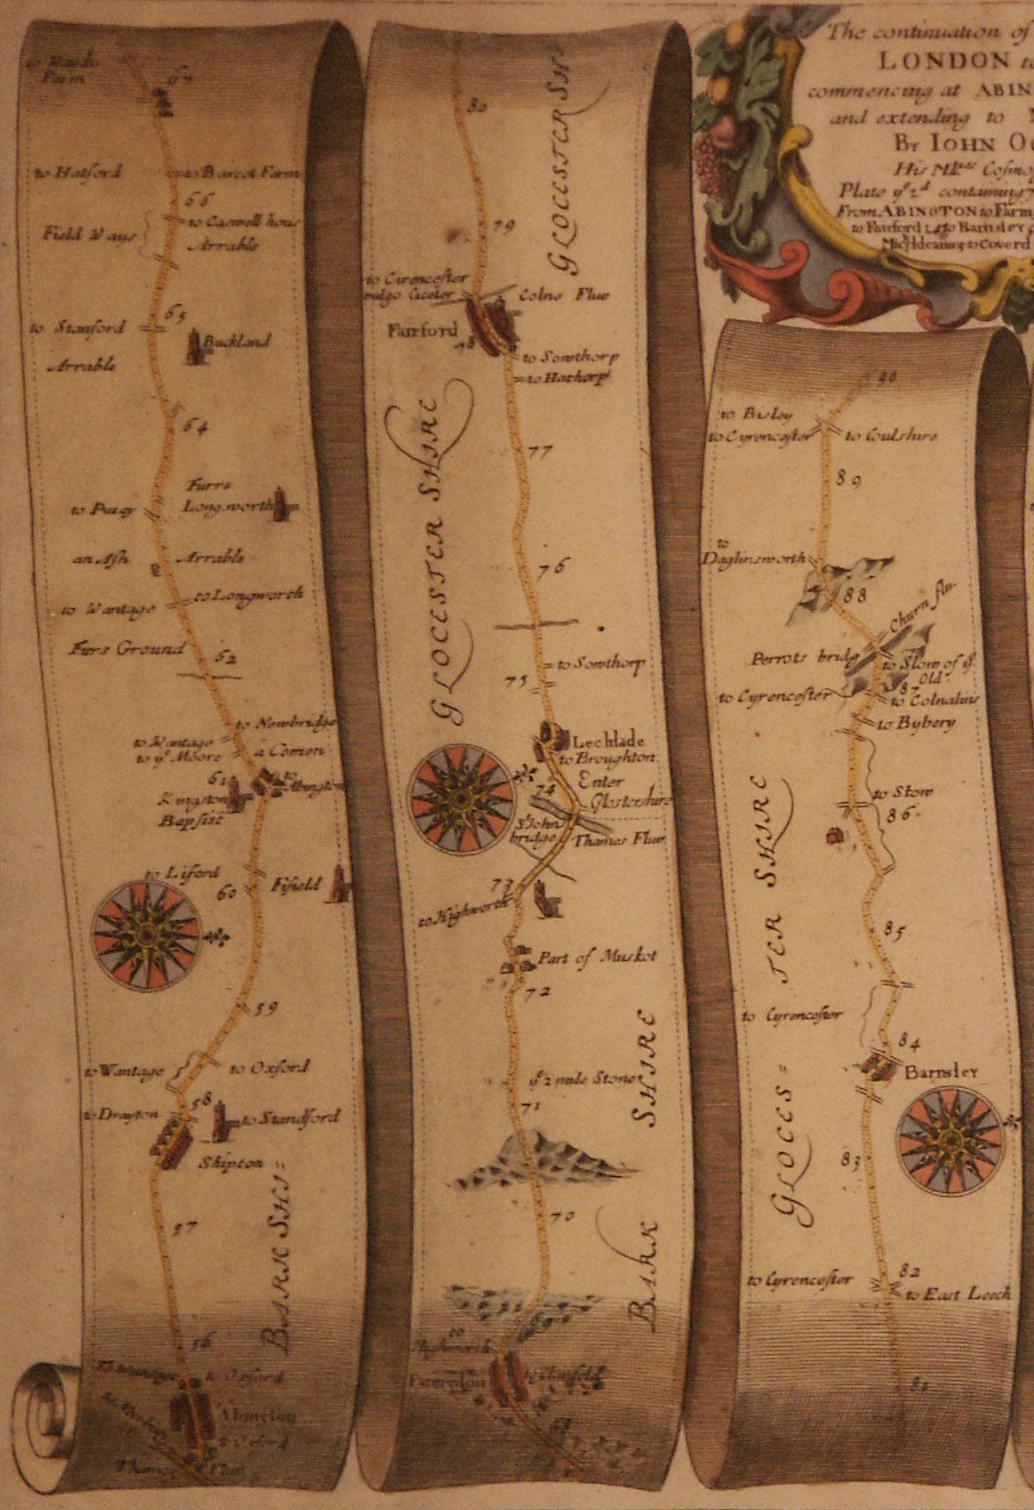 The continuation of
LONDON to
commencing at ABIN
and extending to
By IOHN O
His Ma.ties Cosmo
Plate ye 2d containing
From ABINGTON to Farm
to Fairford to Barnsley
to Coverd
67
Farm
to Hatford
to Barcot Farm
66
to Caswell hous
Field Ways
Arrable
65
to Stanford
Buckland
Arrable
64
Furrs
to Pusey
Longsworth
an Ash
Arrable
to Wantage
to Longworth
Furs Ground
62
to Newbridge
to Wantage
to ye Moore
a Comon
61
to Abington
Kingston
Bapsise
to Liford
60
Fifield
59
to Wantage
to Oxford
58
to Drayton
to Standford
Shipton
57
BARK SHI=
56
to Wantage
to Oxford
Abington
to Oxford
Thames Flu
80
GLOCESTER SH
79
to Cirencester
vulgo Ciceter
Colne Fluv
Fairford
78
to Sowthorp
to Hathorp
77
GLOCESTER SHIRE
76
to Sowthorp
75
Lechlade
to Broughton
Enter
Glostershire
74
St Johns
bridge
Thames Fluv
73
to Highworth
Part of Muskot
72
ye 2 mile Stone
71
70
BARK SHIRE
69
to
Highworth
Farrington
90
to Bisley
to Cyrencester
to Coulshire
89
to
Daglinsworth
88
Churn flu.
Perrots bridg
to Stow of ye
Old
87
to Cyrencester
to Colnalins
to Bybery
to Stow
86
85
to Cyrencester
84
Barnsley
83
GLOCES=TER SHIRE
82
to Cyrencester
to East Leech
81